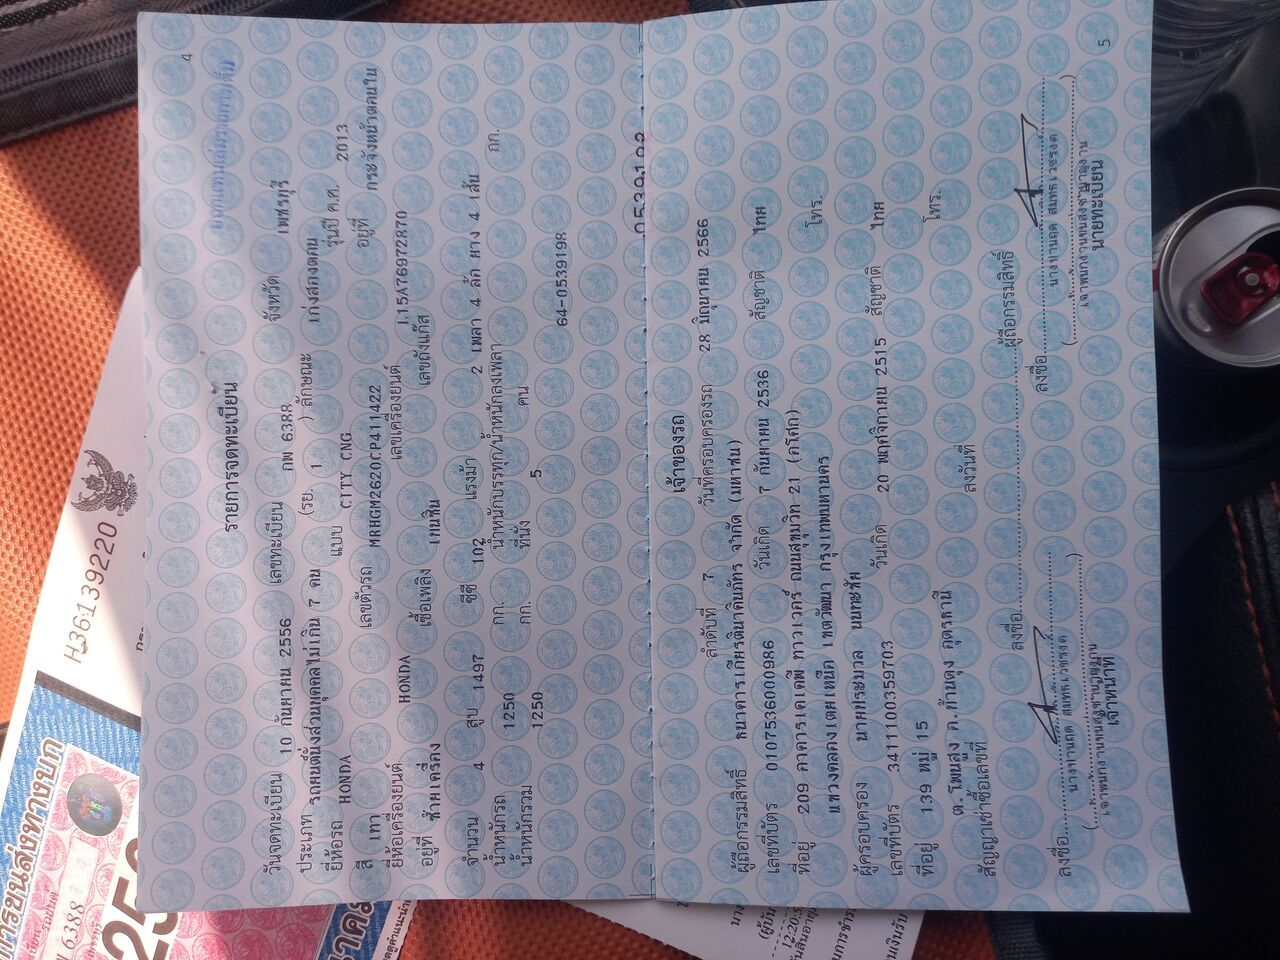 4
รายการจดทะเบียน
วันจดทะเบียน 10 กันยายน 2556 เลขทะเบียน กพ 6388 จังหวัด เพชรบุรี
ประเภท รถยนต์นั่งส่วนบุคคลไม่เกิน 7 คน (รย. 1 ) ลักษณะ เก๋งสองตอน
ยี่ห้อรถ HONDA แบบ CITY CNG รุ่นปี ค.ศ. 2013
สี เทา เลขตัวรถ MRHGM2620CP411422 อยู่ที่
ยี่ห้อเครื่องยนต์ HONDA เลขเครื่องยนต์ L15A76972870
อยู่ที่ ซ้ายเครื่อง เชื้อเพลิง เลขถังแก๊ส
จำนวน 4 สูบ 1497 ซีซี 102 แรงม้า 2 เพลา 4 ล้อ ยาง 4 เส้น
น้ำหนักรถ 1250 กก. น้ำหนักบรรทุก/น้ำหนักลงเพลา กก.
น้ำหนักรวม 1250 กก. ที่นั่ง 5 คน
64-0539198
0539198
เจ้าของรถ
ลำดับที่ 7 วันที่ครอบครองรถ 28 มิถุนายน 2566
ผู้ถือกรรมสิทธิ์ ธนาคารเกียรตินาคินภัทร จำกัด (มหาชน)
เลขที่บัตร 0107536000986 วันเกิด 7 กันยายน 2536 สัญชาติ ไทย
ที่อยู่ 209 อาคารเคเคพี ทาวเวอร์ ถนนสุขุมวิท 21 (อโศก) โทร.
แขวงคลองเตยเหนือ เขตวัฒนา กรุงเทพมหานคร
ผู้ครอบครอง
เลขที่บัตร 3411100359703 วันเกิด 20 พฤศจิกายน 2515 สัญชาติ ไทย
ที่อยู่ 139 หมู่ 15 โทร.
ต.โพนสูง อ.บ้านดุง อุดรธานี
สัญญาเช่าซื้อเลขที่ ลงวันที่
ลงชื่อ ผู้ถือกรรมสิทธิ์
ลงชื่อ ลงชื่อ
เจ้าหน้าที่ นายทะเบียน
5
H36139220
6388
12:20:5